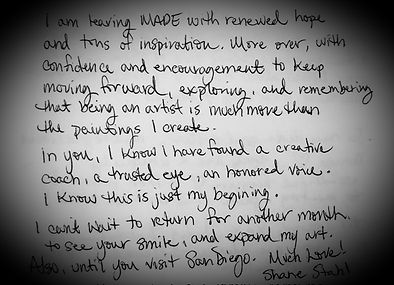 I am leaving MADE with renewed hope
and tons of inspiration. More over, with
confidence and encouragement to keep
moving forward, exploring, and remembering
that being an artist is much more than
the paintings I create.
In you, I know I have found a creative
coach, a trusted eye, an honored voice.
I know this is just my begining.
I can't wait to return for another month,
to see your smile, and expand my art.
Also, until you visit San Diego. Much Love!
Shane Stahl